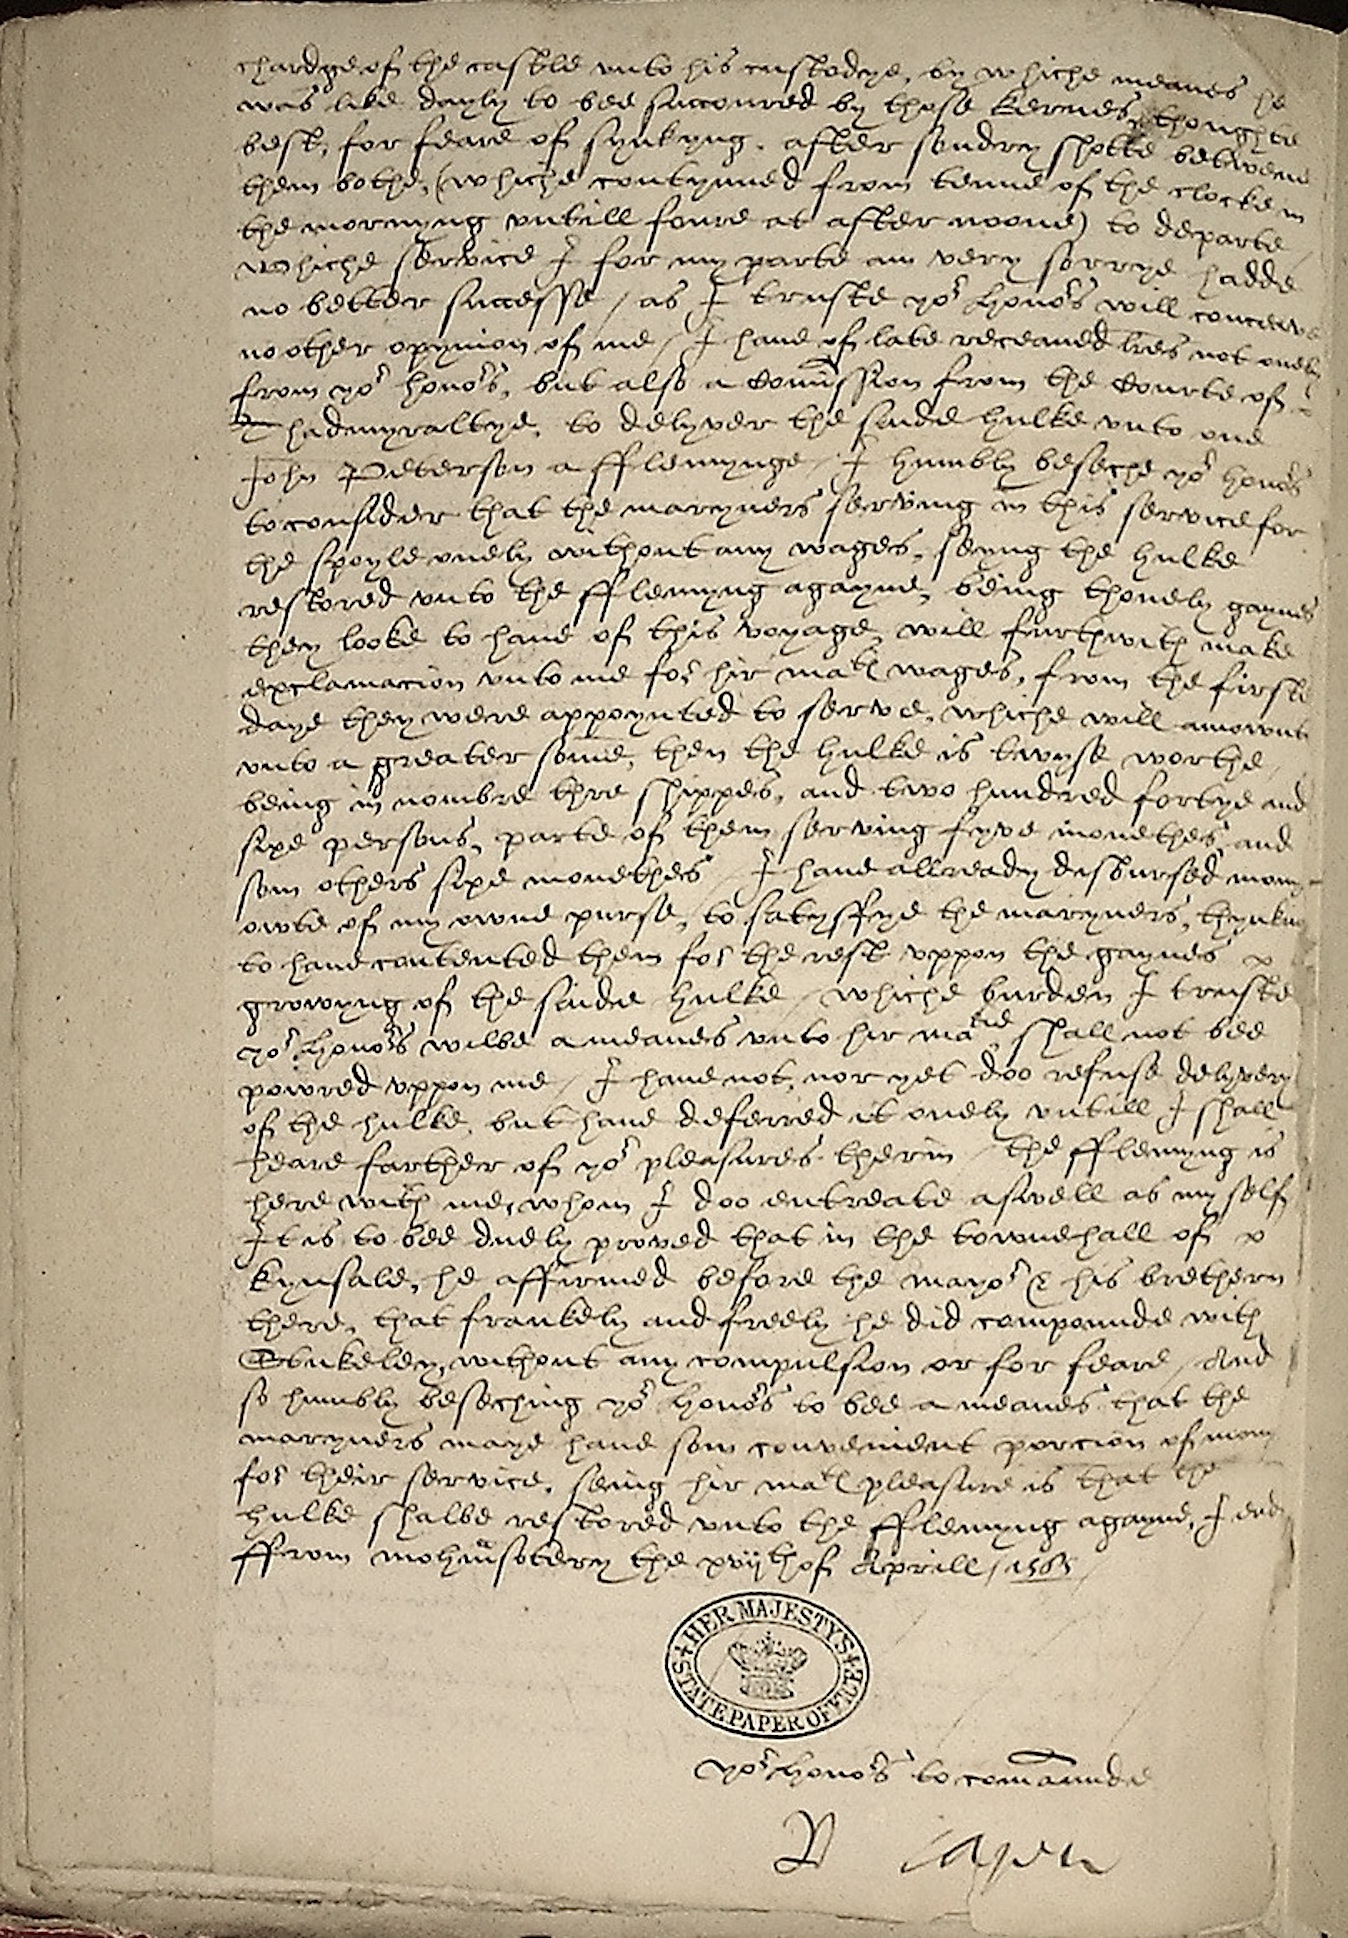 chardge of the castle vnto his custodye, by whiche meanes he
was like dayly to bee succoured by those kernes, thoughte
best, for feare of synkyng, after sondrey shotte betwene
them bothe, (whiche contynued from tenne of the clocke in
the mornyng vntill foure at after noone) to departe /
whiche service I for my parte am very sorrye hadde
no better successe / as I truste yor honors will conceive
no other opynion of me / I haue of late receaued lres not onely
from yor honors, but also a comission from the Courte of
Thadmyraltye, to delyver the saide hulke vnto one
John Peterson a fflemynge / I humbly beseche yor honors
to consider that the maryners serving in this service for
the spoyle onely without any wages, seyng the hulke
restored vnto the fflemyng agayne, being thonely gaynes
they looke to haue of this voyage, will furthwith make
exclamacion vnto me for hir matis wages, from the firste
daye they were appoynted to serve, whiche will amounte
vnto a greater some, then the hulke is twyse worthe /
being in nombre thre shippes, and two hundred fortye and
sixe persons, parte of them serving fyve monethes, and
som others sixe monethes / I haue allready disbursed mony
owte of my owne purse, to satysffye the maryners, thynking
to haue contented them for the rest vppon the gaynes
growyng of the saide hulke / whiche burden I truste
yor honors wilbe a meanes vnto hir matie shall not bee
powred vppon me / I haue not, nor yet doo refuse delyvery
of the hulke, but haue deferred it onely vntill I shall
heare farther of yor pleasures therin / the fflemyng is
here with me, whom I doo entreate aswell as my self
It is to bee duely proved that in the townehall of
Kynsale, he affirmed before the mayor & his brethern
there, that frankely and freely he did compounde with
Stukeley, without any compulsion or for feare / And
so humbly beseching yor honors to bee a meanes that the
maryners maye haue som convenient porcion of mony
for their service, seing hir matis pleasure is that the
hulke shalbe restored vnto the fflemyng agayne, I end
ffrom mohunsotery the xvijth of Aprill / 1565 /
HER MAJESTY'S STATE PAPER OFFICE
yor honors to comaunde